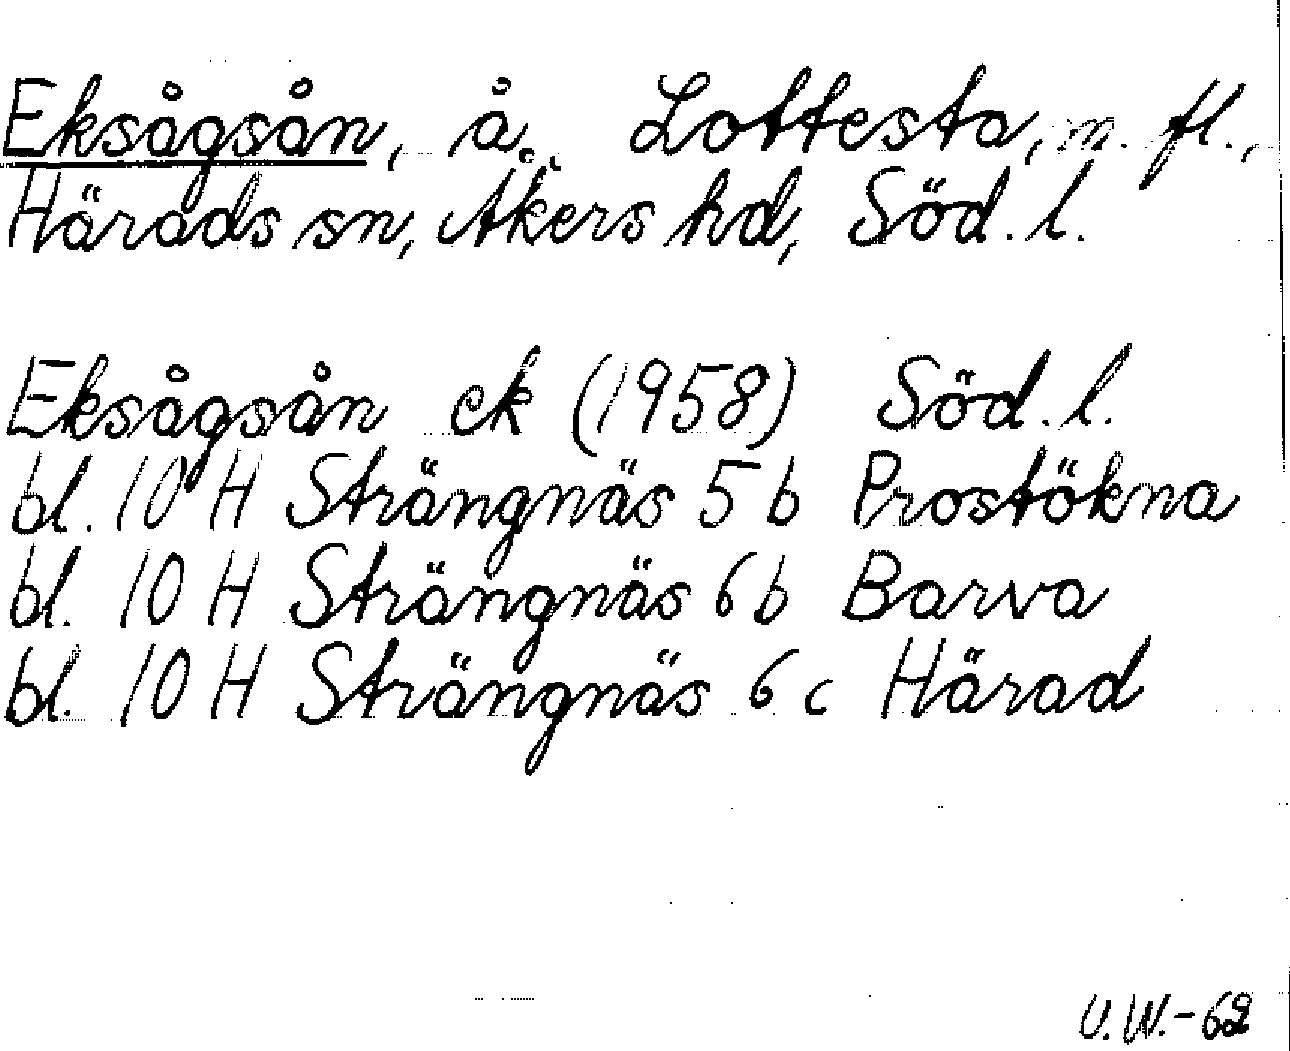 Eksågsån, å. Lottesta, m. fl.,
Härads sn, Åkers hd, Söd. l.
Eksågsån ek (1958) Söd. l.
bl. 10 H Strängnäs 5 b Prostökna
bl. 10 H Strängnäs 6 b Barva
bl. 10 H Strängnäs 6 c Härad
U.W.-62